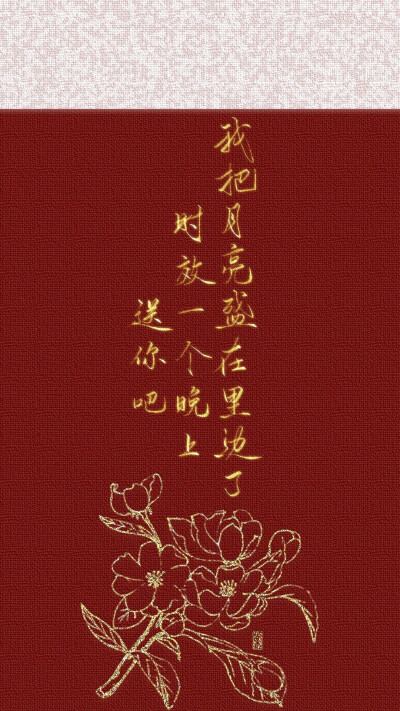 我把月亮盛在里边了
时效一个晚上
送你吧